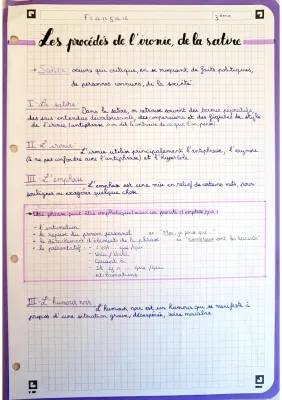 Français 3ème
Les procédés de l'ironie, de la satire
→ Satire : œuvre qui critique, en se moquant de faits politiques,
de personnes connues, de la société
I - La satire
Dans la satire, on retrouve souvent des termes péjoratifs,
des sous-entendus dévalorisants, des comparaisons et des figures de style
de l'ironie (antiphrase : on dit le contraire de ce que l'on pense).
II - L'ironie
L'ironie utilise principalement l'antiphrase, l'
(à ne pas confondre avec l'antiphrase) et l'hyperbole
III - L'emphase
L'emphase est une mise en relief de certains mots, pour
souligner ou exagérer quelque chose.
Une phrase peut être emphatique
- l'intonation
- la reprise du pronom personnel "Moi, je pense que"
- le détachement d'éléments de la phrase
- le présentatif - C'est... qui/que
Voici / Voilà
Quant à
Il y a ... que/qui
III - L'humour noir
L'humour noir est un humour qui se manifeste à
propos d'une situation grave, désespérée, voire macabre.